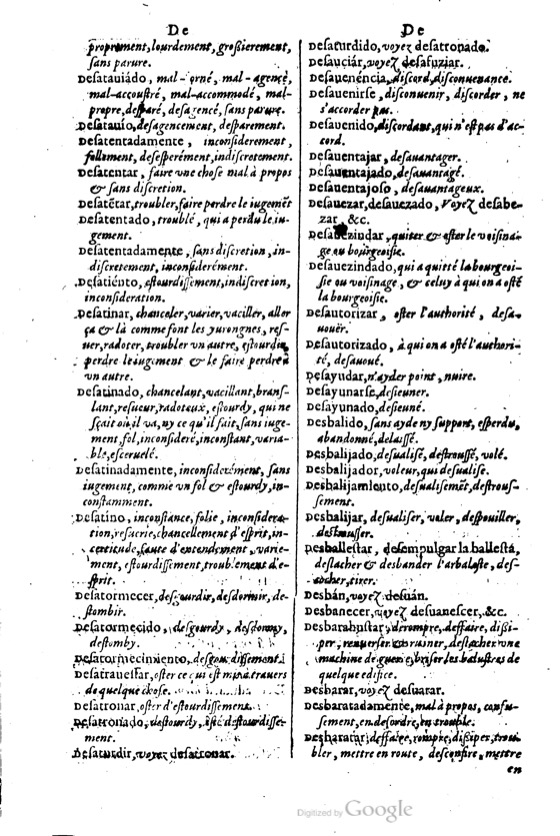 De
proprement, lourdement, großierement,
sans parure.
Desatauiádo, mal-orné, mal-agencé,
mal-accoustré, mal-accommodé, mal-
propre, desparé, desagencé, sans parure.
Desatauío, desagencement, desparement.
Desatentadamente, inconsiderement,
follement, desesperément, indiscretement.
Desatentar, faire une chose mal à propos
& sans discretion.
Desatētar, troubler, faire perdre le iugemēt
Desatentado, troublé, qui a perdu le iu-
gement.
Desatentadamente, sans discretion, in-
discretement, inconsiderément.
Desatiénto, estourdissement, indiscretion,
inconsideration.
Desatinar, chanceler, varier, vaciller, aller
ça & là comme font les yurongnes, res-
uer, radoter, troubler vn autre, estourdir,
perdre le iugement & le faire perdre à
vn autre.
Desatinado, chancelant, vacillant, brans-
lant, resueur, radoteux, estourdy, qui ne
sçait où il va, ny ce qu'il fait, sans iuge-
ment, fol, inconsideré, inconstant, varia-
ble, escerúelé.
Desatinadamente, inconsiderément, sans
iugement, comme vn fol & estourdy, in-
constamment.
Desatino, inconstance, folie, inconsidera-
tion, resuerie, chancellement d'esprit, in-
certitude, faute d'entendement, varie-
ment, estourdissement, troublement d'e-
sprit.
Desatormecer, desgourdir, desdormir, de-
stombir.
Desatormecido, desgourdy, desdormy,
destomby.
Desatormecimiento, desgourdissement.
Desatrauessar, oster ce qui est mis à trauers
de quelque chose.
Desatronar, oster d'estourdissement.
Desatronado, destourdy, osté d'estourdisse-
ment.
Desaturdir, voyez desatronar.
De
Desaturdido, voyez desatronado.
Desauciár, voyez desafuziar.
Desauenéncia, discord, disconuenance.
Desauenirse, disconuenir, discorder, ne
s'accorder pas.
Desauenido, discordant, qui n'est pas d'ac-
cord.
Desauentajar, desauantager.
Desauentajado, desauantagé.
Desauentajoso, desauantageux.
Desauezar, desauezado, Voyez desabe-
zar, &c.
Desauezindar, quiter & oster le voisina-
ge ou bourgeoisie.
Desauezindado, qui a quitté la bourgeoi-
sie ou voisinage, & celuy à qui on a osté
la bourgeoisie.
Desautorizar, oster l'authorité, desa-
uouër.
Desautorizado, à qui on a osté l'authori-
té, desauoué.
Desayudar, n'ayder point, nuire.
Desayunarse, desieuner.
Desayunado, desieuné.
Desbalido, sans ayde ny support, esperdu,
abandonné, delaissé.
Desbalijado, desualisé, destroussé, volé.
Desbalijador, voleur, qui desualise.
Desbalijamiento, desualisemēt, destrous-
sement.
Desbalijar, desualiser, voler, despouiller,
destrousser.
Desballestar, desempulgar la ballesta,
destacher & desbander l'arbaleste, des-
cocher, tirer.
Desbán, voyez desuán.
Desbanecer, voyez desuanescer, &c.
Desbarahustar, derompre, deffaire, dissi-
per, renuerser & ruiner, destacher vne
machine de guerre, briser les balustres de
quelque edifice.
Desbarar, voyez desuarar.
Desbaratadamente, mal à propos, confu-
sement, en desordre, en trouble.
Desbaratar, deffaire, rompre, dissiper, trou-
bler, mettre en route, desconfire, mettre
en
Digitized by Google